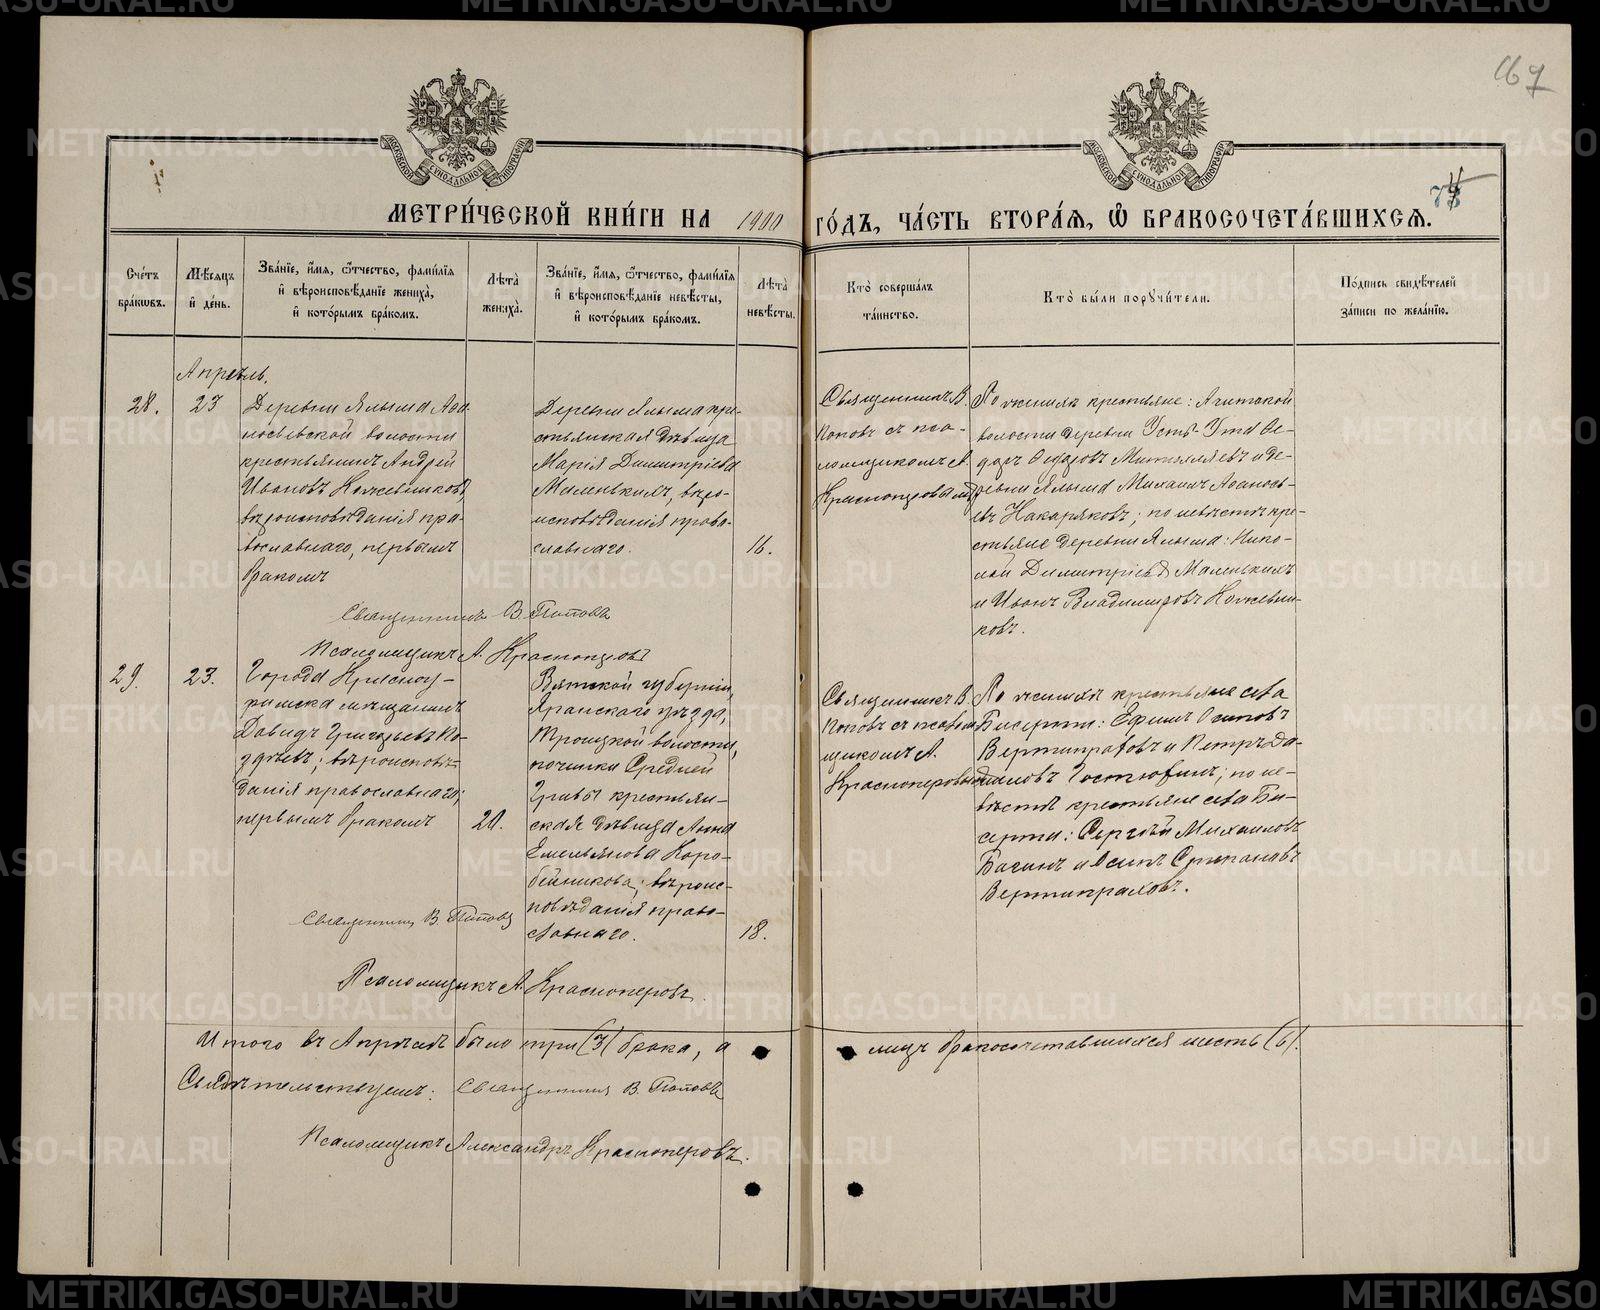 167
МЕТРИЧЕСКОЙ КНИГИ НА 1900 ГОДЪ, ЧАСТЬ ВТОРАЯ, Ѡ БРАКОСОЧЕТАВШИХСЯ.
Счетъ браковъ.
Мѣсяцъ и день.
Званіе, имя, отчество, фамилія и вѣроисповѣданіе жениха, и которымъ бракомъ.
Лѣта жениха.
Званіе, имя, отчество, фамилія и вѣроисповѣданіе невѣсты, и которымъ бракомъ.
Лѣта невѣсты.
Кто совершалъ таинство.
Кто были поручители.
Подпись свидѣтелей записи по желанію.
Апрѣль.
28.
23
Деревни Ялыма Афа-
насьевской волости
крестьянинъ Андрей
Ивановъ Кожевниковъ,
вѣроисповѣданія пра-
вославнаго, первымъ
бракомъ
Деревни Ялыма кре-
стьянская дѣвица
Марія Димитріева
Маленькихъ, вѣро-
исповѣданія право-
славнаго.
16.
Священникъ В.
Поповъ съ пса-
ломщикомъ А.
Красноперовымъ
По женихѣ крестьяне: Ачитской
волости деревни Усть-Ута Ѳе-
доръ Ѳедоровъ и де-
ревни Ялыма Михаилъ Аѳанась-
евъ Накаряковъ; по невѣстѣ кре-
стьяне деревни Ялыма: Нико-
лай Димитріевъ Маленькихъ
и Иванъ Владимировъ Кожевни-
ковъ.
Священникъ В. Поповъ
Псаломщикъ А. Красноперовъ
29.
23.
Города Красноу-
фимска мѣщанинъ
Давидъ Григорьевъ Ко-
; вѣроисповѣ-
данія православнаго;
первымъ бракомъ
20.
Вятской губерніи,
Яранскаго уѣзда,
Троицкой волости,
починка Средней
Гривы крестьян-
ская дѣвица Анна
Емельянова Коро-
бейникова; вѣроис-
повѣданія право-
славнаго.
18.
Священникъ В.
Поповъ съ псалом-
щикомъ А.
Красноперовымъ
По женихѣ крестьяне села
Бисерти: Ефимъ Осиповъ
Вертипраховъ и Петръ Да-
ниловъ Гостюхинъ; по не-
вѣстѣ крестьяне села Би-
серти: Сергѣй Михаиловъ
и Осипъ Степановъ
Вертипраховъ.
Священникъ В. Поповъ
Псаломщикъ А. Красноперовъ.
Итого въ Апрѣлѣ было три (3) брака, а лицъ бракосочетавшихся шесть (6).
Свидѣтельствуемъ: Священникъ В. Поповъ
Псаломщикъ Александръ Красноперовъ.
METRIKI.GASO-URAL.RU